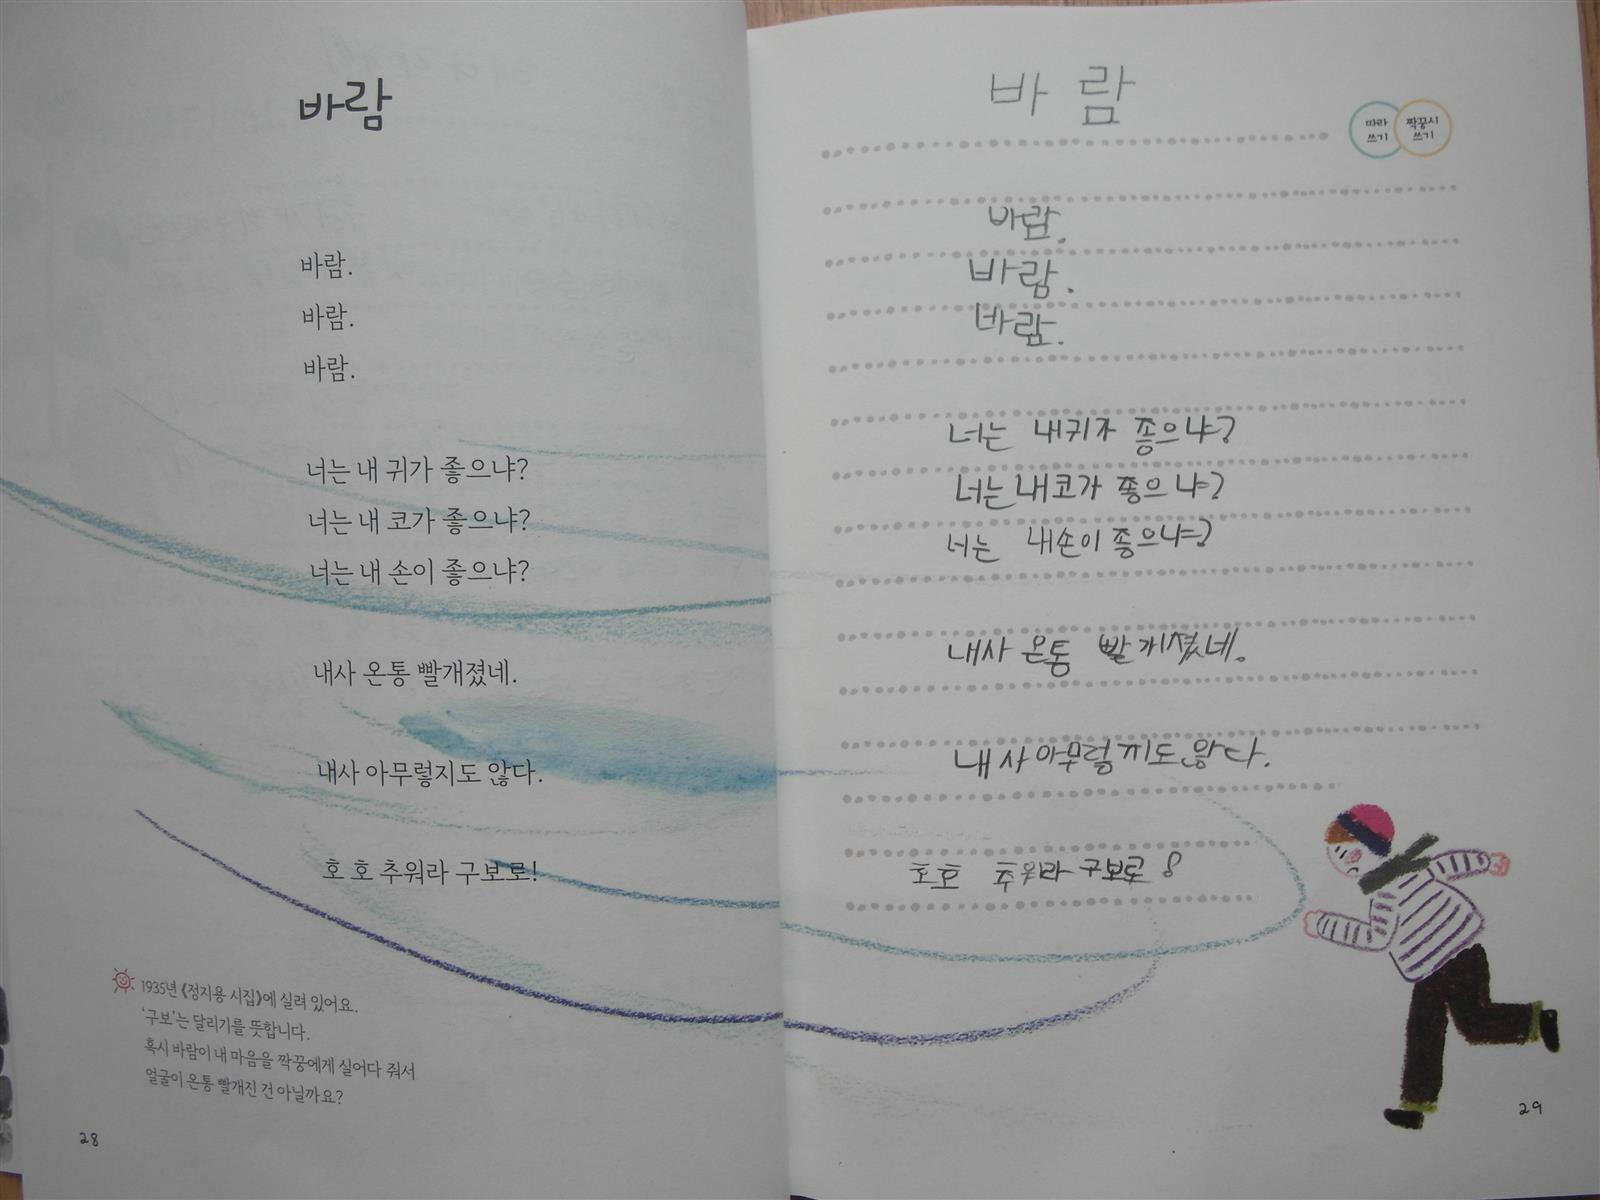 바람
바람.
바람.
바람.
너는 내 귀가 좋으냐?
너는 내 코가 좋으냐?
너는 내 손이 좋으냐?
내사 온통 빨개졌네.
내사 아무렇지도 않다.
호 호 추워라 구보로!
1935년 《정지용 시집》에 실려 있어요.
'구보'는 달리기를 뜻합니다.
혹시 바람이 내 마음을 짝꿍에게 실어다 줘서
얼굴이 온통 빨개진 건 아닐까요?
28
바 람
따라
쓰기
짝꿍시
쓰기
바람.
바람.
바람.
너는 내귀가 좋으냐?
너는 내코가 좋으냐?
너는 내손이 좋으냐?
내사 온통 빨개졌네.
내사 아무렇지도 않다.
호호 추워라 구보로!
29